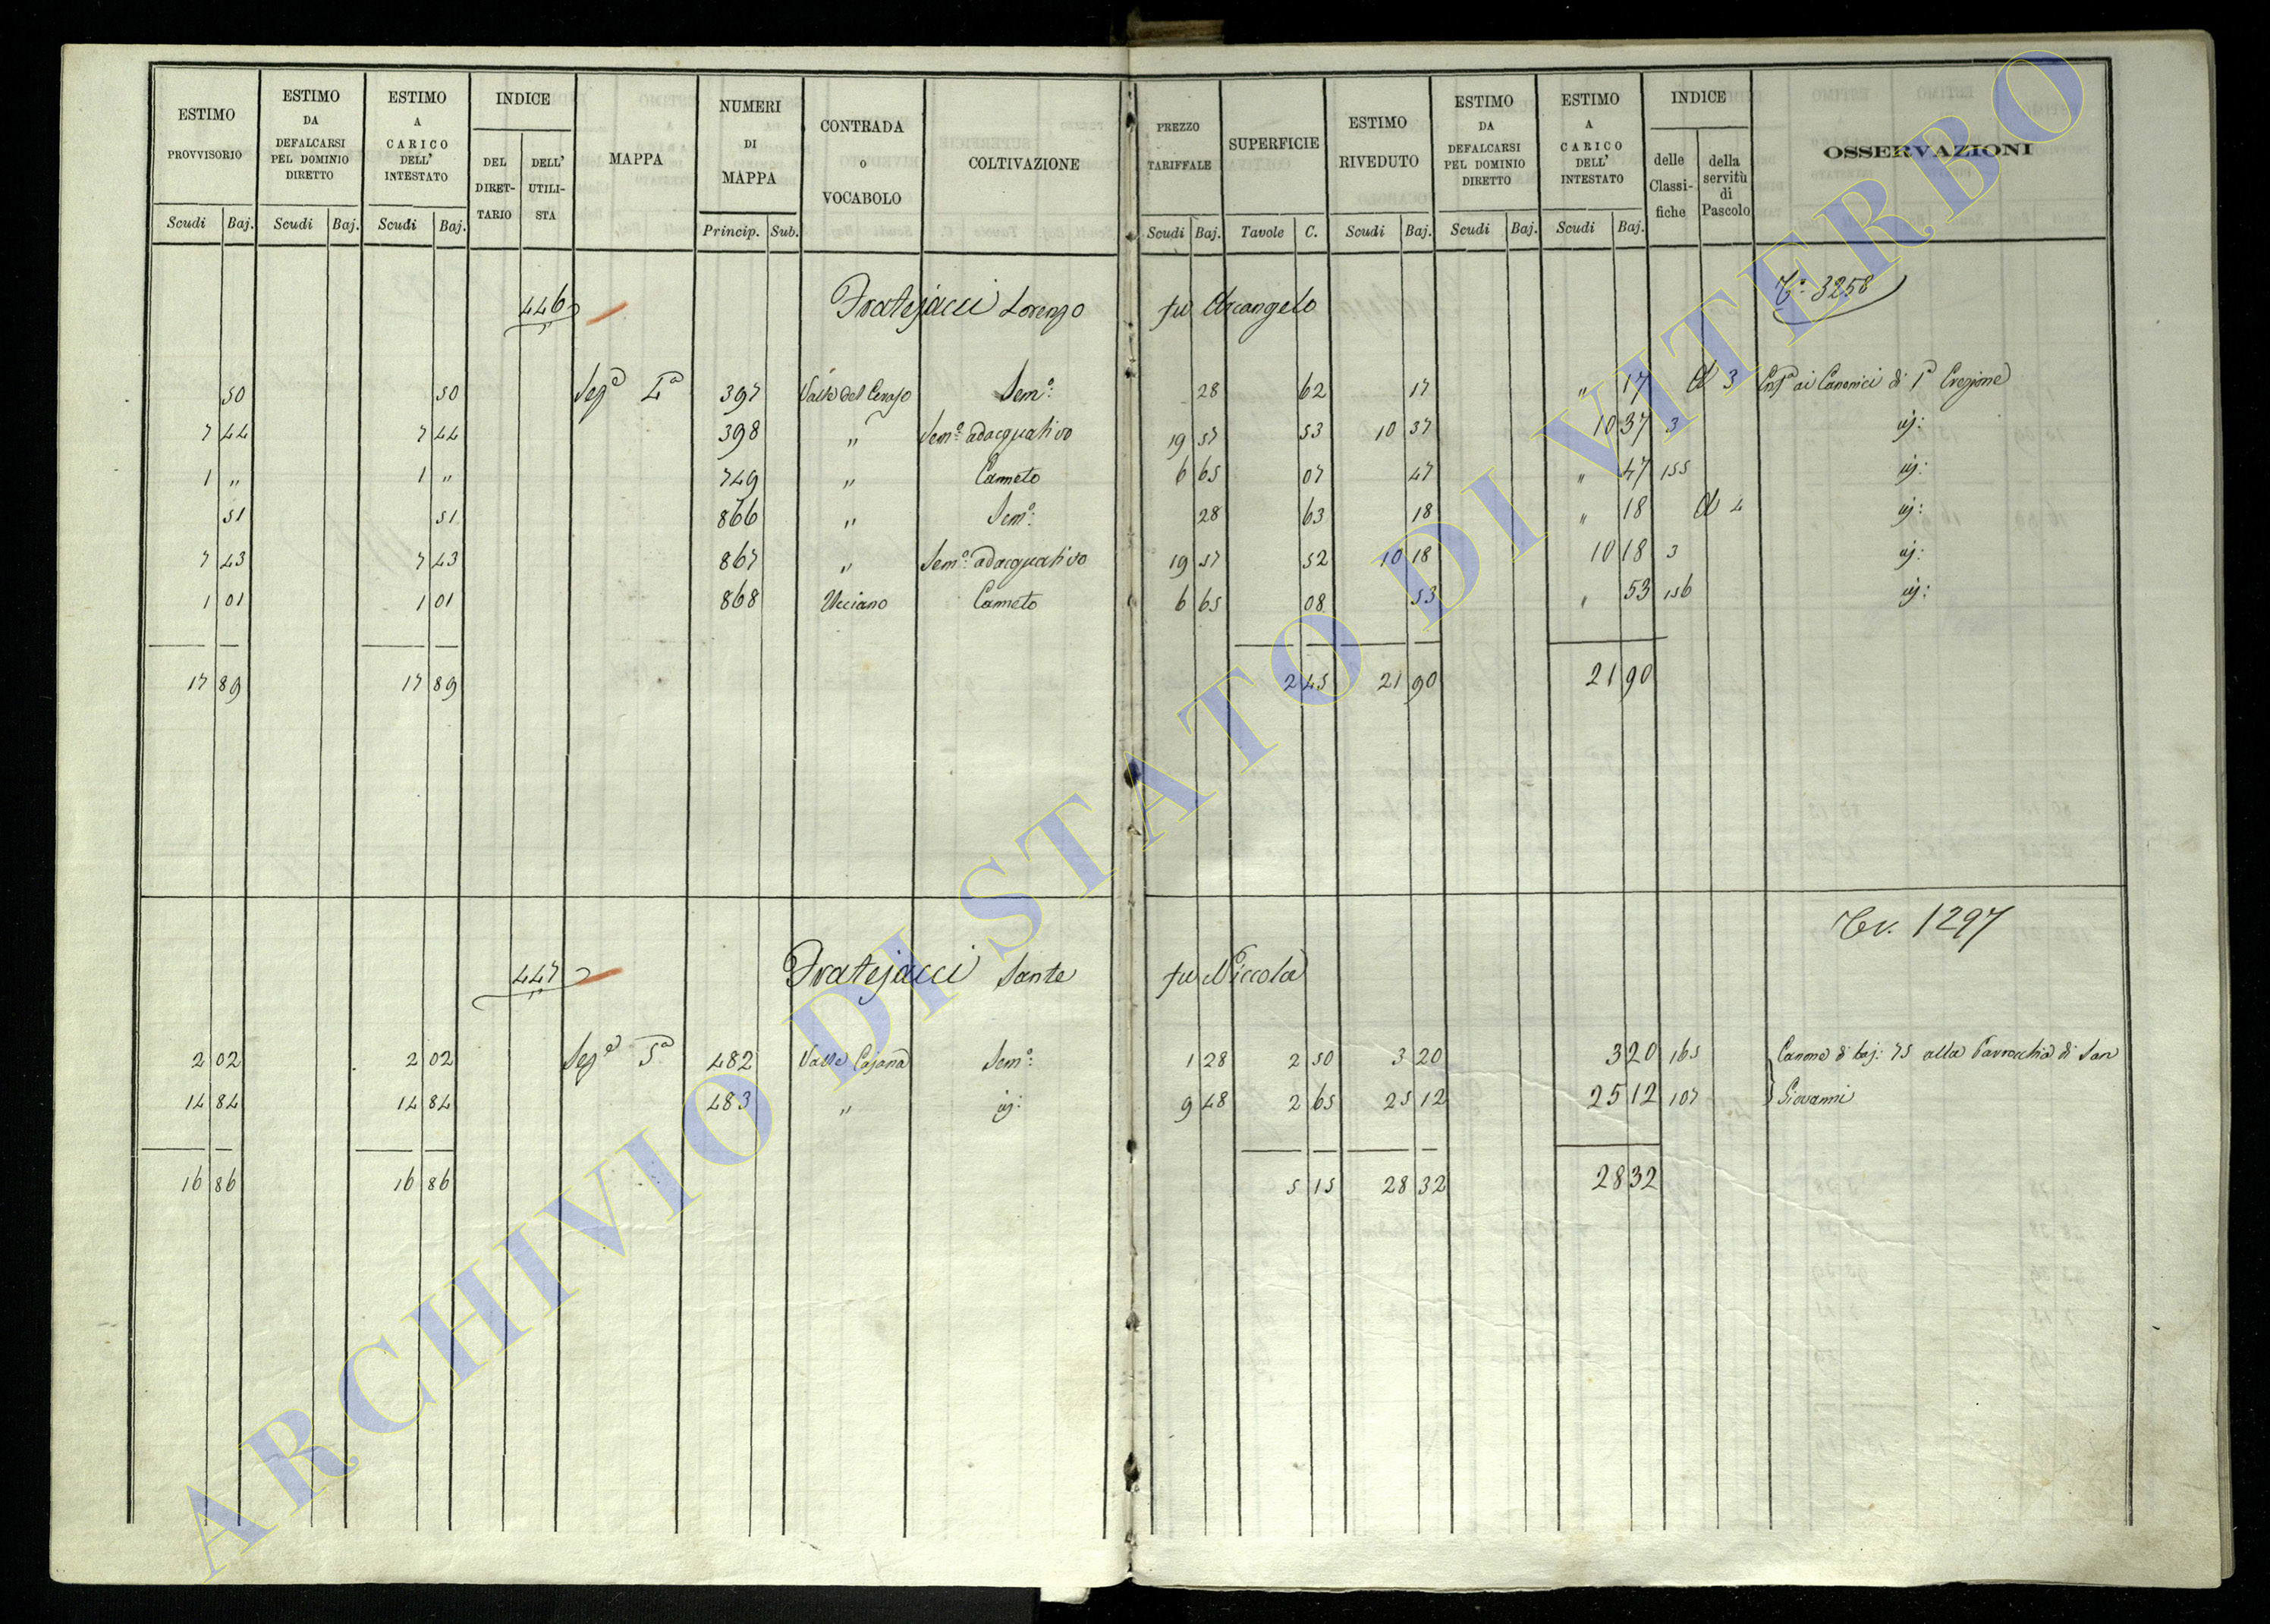 ESTIMO PROVVISORIO | ESTIMO DA DEFALCARSI PEL DOMINIO DIRETTO | ESTIMO A CARICO DELL' INTESTATO | INDICE DEL DIRET-TARIO | DELL' UTILI-STA | MAPPA | NUMERI DI MAPPA | CONTRADA o VOCABOLO | COLTIVAZIONE | PREZZO TARIFFALE | SUPERFICIE | ESTIMO RIVEDUTO | ESTIMO DA DEFALCARSI PEL DOMINIO DIRETTO | ESTIMO A CARICO DELL' INTESTATO | INDICE delle Classi-fiche | della servitù di Pascolo | OSSERVAZIONI
Scudi | Baj. | Scudi | Baj. | Scudi | Baj. | Princip. | Sub. | Scudi | Baj. | Tavole | C. | Scudi | Baj. | Scudi | Baj. | Scudi | Baj.
3258
446 Fratejacci Lorenzo fu Arcangelo
50 | 50 | Sez.e 4a | 397 | Valle del Ceraso | Sem.o | 28 | 62 | 17 | " 17 | A 3 | ai Canonici di 1a Erezione
7 44 | 7 44 | 398 | " | Sem.o adacquativo | 19 57 | 53 | 10 37 | 10 37 | 3 | id:
1 " | 1 " | 749 | " | Canneto | 6 65 | 07 | 47 | " 47 | 155 | id:
51 | 51 | 866 | " | Sem.o | 28 | 63 | 18 | " 18 | A 4 | id:
7 43 | 7 43 | 867 | " | Sem.o adacquativo | 19 57 | 52 | 10 18 | 10 18 | 3 | id:
1 01 | 1 01 | 868 | Ucciano | Canneto | 6 65 | 08 | 53 | " 53 | 156 | id:
17 89 | 17 89 | 2 45 | 21 90 | 21 90
1297
447 Fratejacci Sante fu Niccola
2 02 | 2 02 | Sez.e 5a | 482 | Valle Casana | Sem.o | 1 28 | 2 50 | 3 20 | 3 20 | 165 | Canone di baj: 75 alla Parrocchia di San
14 84 | 14 84 | 483 | " | id: | 9 48 | 2 65 | 25 12 | 25 12 | 107 | Giovanni
16 86 | 16 86 | 5 15 | 28 32 | 28 32
ARCHIVIO DI STATO DI VITERBO